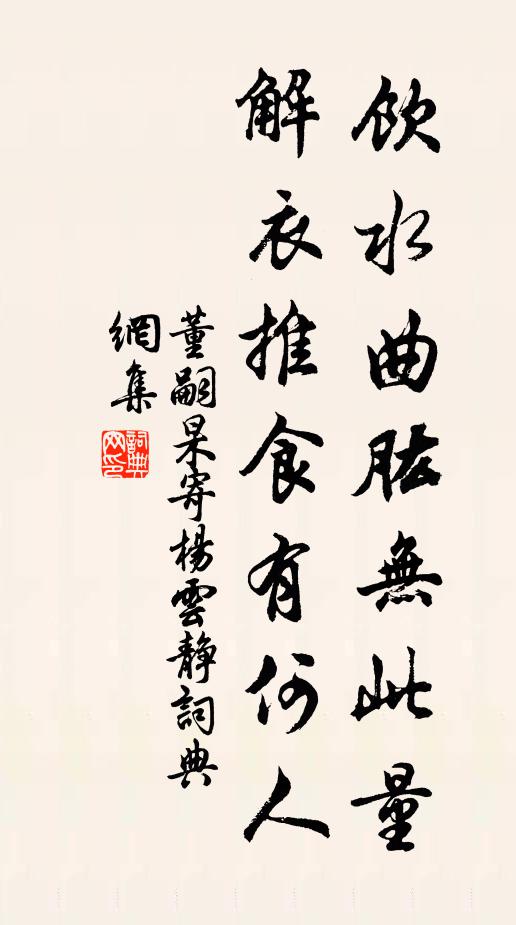 飲水曲肱無此量
解衣推食有何人
董嗣杲寄楊雲靜詞典
網集
詞典網印